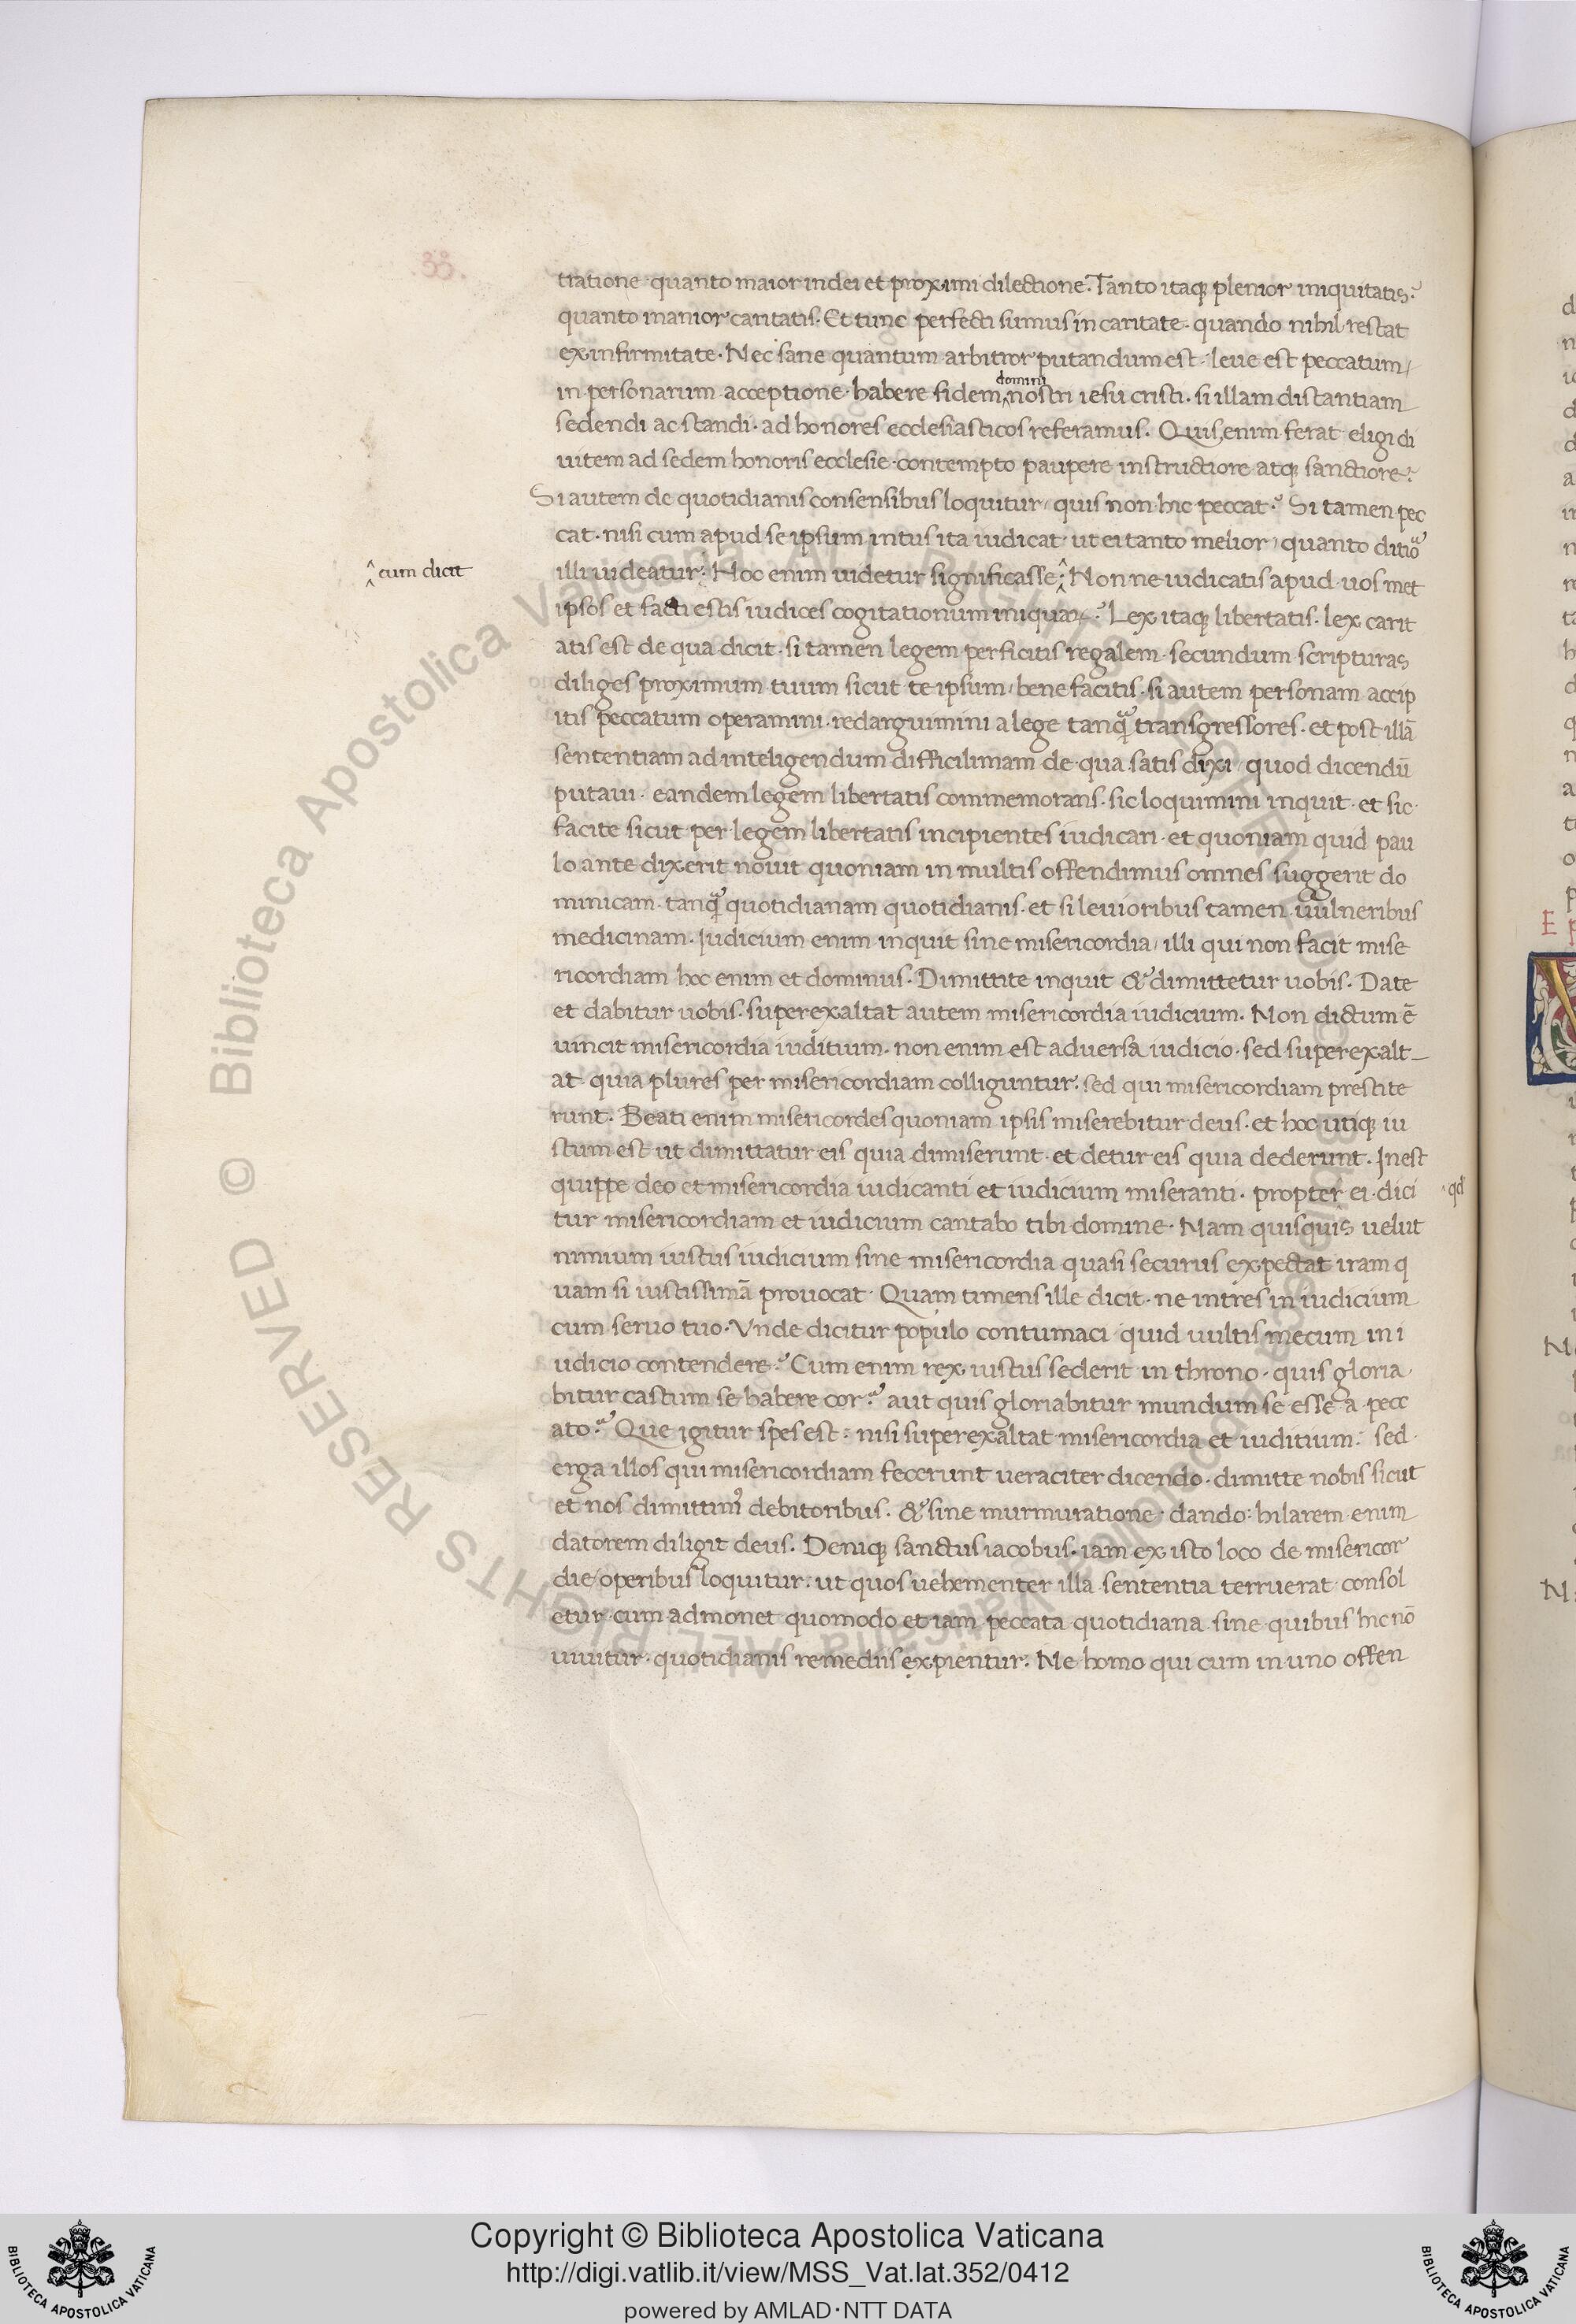 33.
tratione quanto maior in dei et proximi dilectione. Tanto itaq plenior iniquitatis?
quanto manior caritatis. Et tunc perfecti sumus in caritate. quando nihil restat
ex infirmitate. Nec sane quantum arbitror putandum est. leue est peccatum/
domini
in personarum acceptione habere fidem nostri iesu cristi. si illam distantiam
sedendi ac standi. ad honores ecclesiasticos referamus. Quis enim ferat eligi di
uitem ad sedem honoris ecclesie. contempto paupere instructiore atq sanctiore?
Si autem de quotidianis consensibus loquitur/ quis non hic peccat? Si tamen pec
cat. nisi cum apud se ipsum intus ita iudicat ut ei tanto melior/ quanto ditiõ
^ cum dicit
illi uideatur: Hoc enim uidetur significasse: Nonne iudicatis apud uosmet
ipsos et facti estis iudices cogitationum iniquaꝝ? Lex itaq libertatis. lex carit
atis est de qua dicit. si tamen legem perficitis regalem. secundum scripturas
diliges proximum tuum sicut te ipsum/ bene facitis. si autem personam accip
itis peccatum operamini. redarguimini a lege tanq̃ transgressores. et post illã
sententiam ad inteligendum difficilimam de qua satis dixi/ quod dicendũ
putaui. eandem legem libertatis commemorans. sic loquimini inquit. et sic.
facite sicut per legem libertatis incipientes iudicari. et quoniam quid pau
lo ante dixerit nouit quoniam in multis offendimus omnes suggerit do
minicam. tanq̃ quotidianam quotidianis. et si leuioribus tamen uulneribus
medicinam. Iudicium enim inquit sine misericordia/ illi qui non facit mise
ricordiam hoc enim et dominus. Dimittite inquit & dimittetur uobis. Date
et dabitur uobis. superexaltat autem misericordia iudicium. Non dictum ẽ
uincit misericordia iuditium. non enim est aduersa iudicio. sed superexalt
at quia plures per misericordiam colliguntur: sed qui misericordiam prestite
runt. Beati enim misericordes quoniam ipsis miserebitur deus. et hoc utiq iu
stum est ut dimittatur eis quia dimiserunt. et detur eis quia dederunt. Inest
quippe deo et misericordia iudicanti et iudicium miseranti. propter ei. dici
qd
tur misericordiam et iudicium cantabo tibi domine. Nam quisquis uelut
nimium iustus iudicium sine misericordia quasi securus expectat iram q
uam si iustissimã prouocat. Quam timens ille dicit. ne intres in iudicium
cum seruo tuo. Vnde dicitur populo contumaci quid uultis mecum in i
udicio contendere? Cum enim rex iustus sederit in throno. quis gloria.
bitur castum se habere cor? aut quis gloriabitur mundum se esse a pecc
ato? Que igitur spes est: nisi superexaltat misericordia et iuditium: sed.
erga illos qui misericordiam fecerunt ueraciter dicendo. dimitte nobis sicut
et nos dimittimꝰ debitoribus. & sine murmuratione. dando: hilarem enim
datorem diligit deus. Deniq sanctus iacobus. iam ex isto loco de misericor
die/operibus loquitur: ut quos uehementer illa sententia terruerat consol
etur. cum admonet quomodo et iam peccata quotidiana sine quibus hic nõ
uiuitur. quotidianis remediis expientur: Ne homo qui cum in uno offen
Copyright © Biblioteca Apostolica Vaticana
http://digi.vatlib.it/view/MSS_Vat.lat.352/0412
powered by AMLAD·NTT DATA
BIBLIOTECA APOSTOLICA VATICANA
BIBLIOTECA APOSTOLICA VATICANA
© Biblioteca Apostolica Vaticana ALL RIGHTS RESERVED